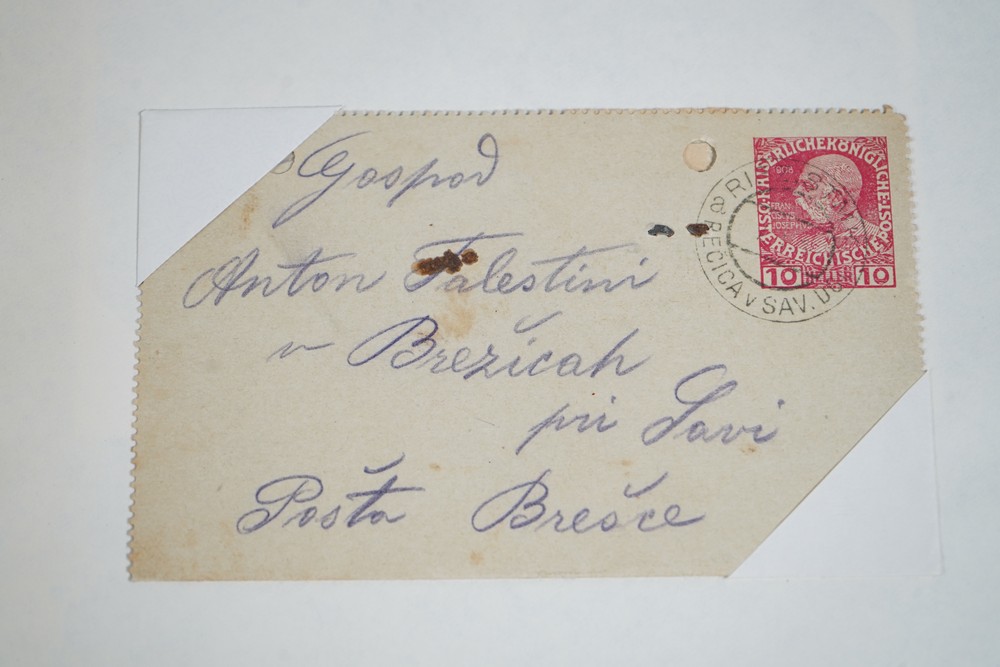 Gospod
Anton Falestini
v Brežicah
pri Savi
Pošta Brešce
KAISERLICHEKÖNIGLICHE
ÖSTERREICHISCHEPOST
1908
FRAN
CISCVS
JOSEPHVS I
10 HELLER 10
REČICA V SAV. DOL.